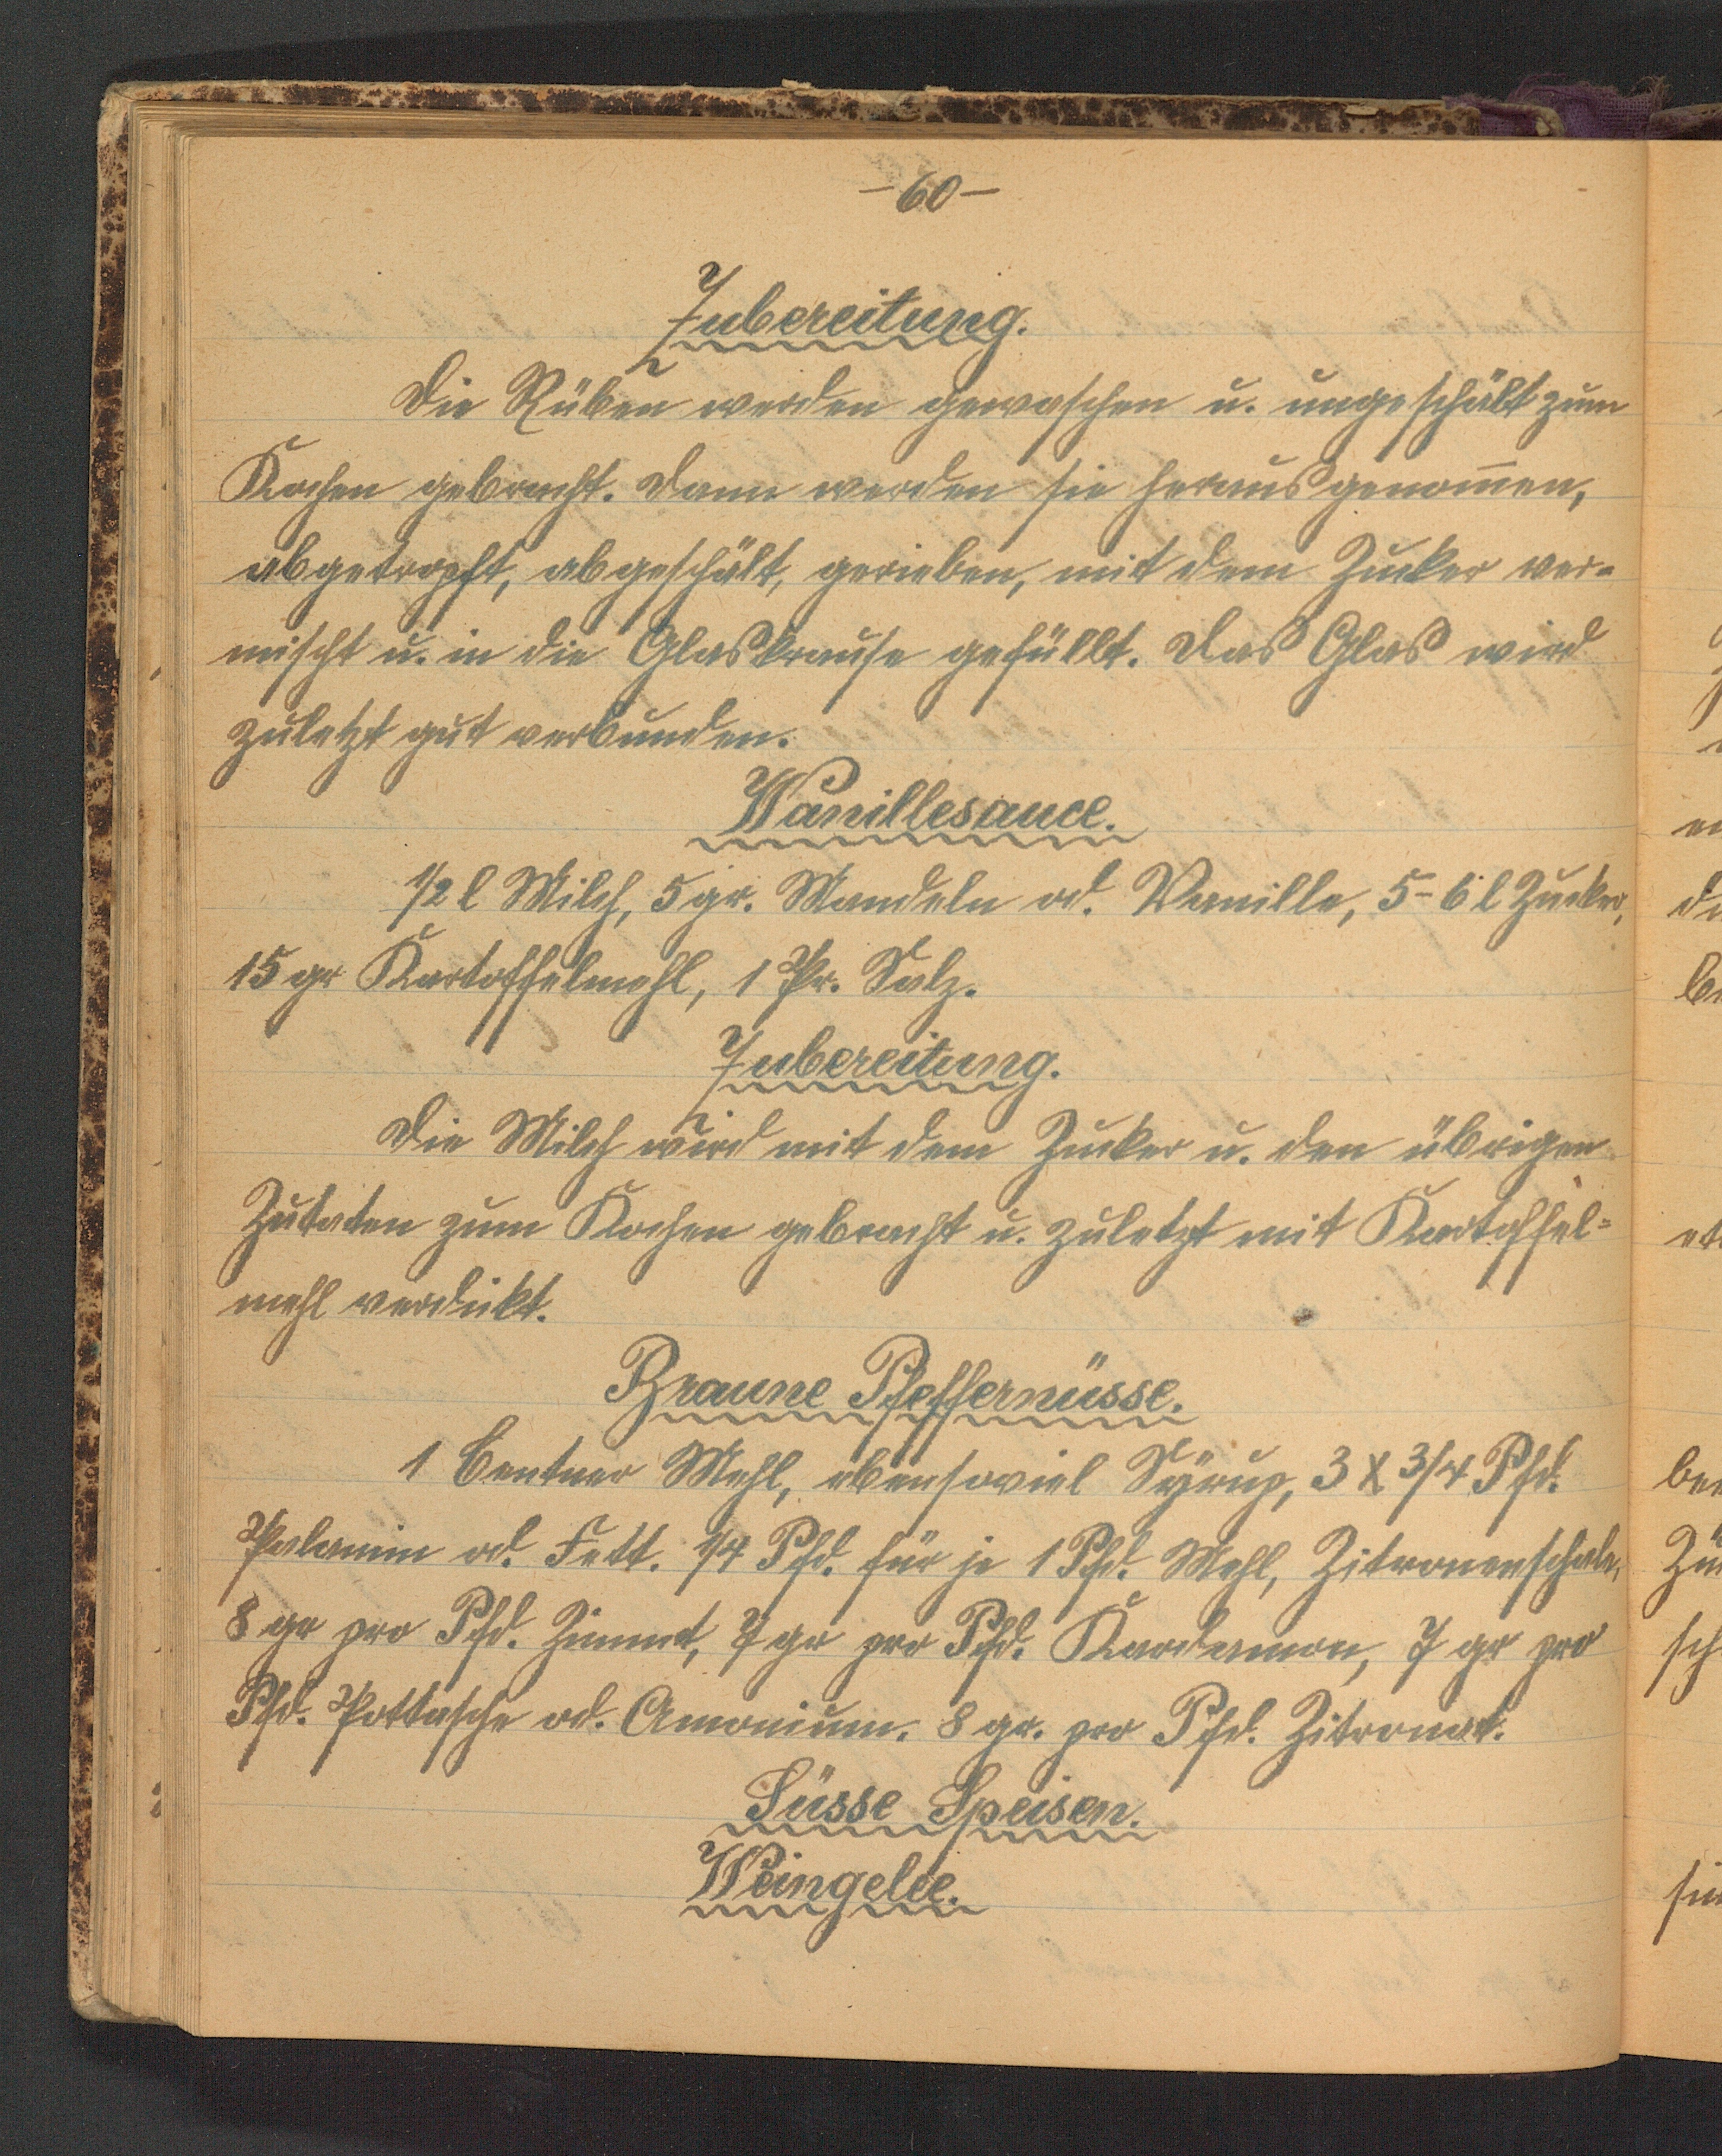 -60-
Zubereitung.
Die Rüben werden gewaschen u. ungeschält zum
Kochen gebracht. Dann werden sie herausgenom̄en,
abgetropft, abgeschält, gerieben, mit dem Zucker ver-
mischt u. in die Glaskrause gefüllt. Das Glas wird
zuletzt gut verbunden.
Vanillesauce.
1/2 l Milch, 5 gr. Mandeln od. Vanille, 5-6 l Zucker,
15 gr Kartoffelmehl, 1 Pr. Salz.
Zubereitung.
Die Milch wird mit dem Zucker u. den übrigen
Zutaten zum Kochen gebracht u. zuletzt mit Kartoffel-
mehl verdickt.
Braune Pfeffernüsse.
1 Centner Mehl, ebensoviel Syrup, 3 x 3/4 Pfd.
Palamin od. Fett. 1/4 Pfd. für je 1 Pfd. Mehl, Zitronenschale,
8 gr pro Pfd. Zimmt, 7 gr pro Pfd. Kardamon, 7 gr pro
Pfd. Pottasche od. Amonium. 8 gr. pro Pfd. Zitronat.
Süsse Speisen.
Weingelee.